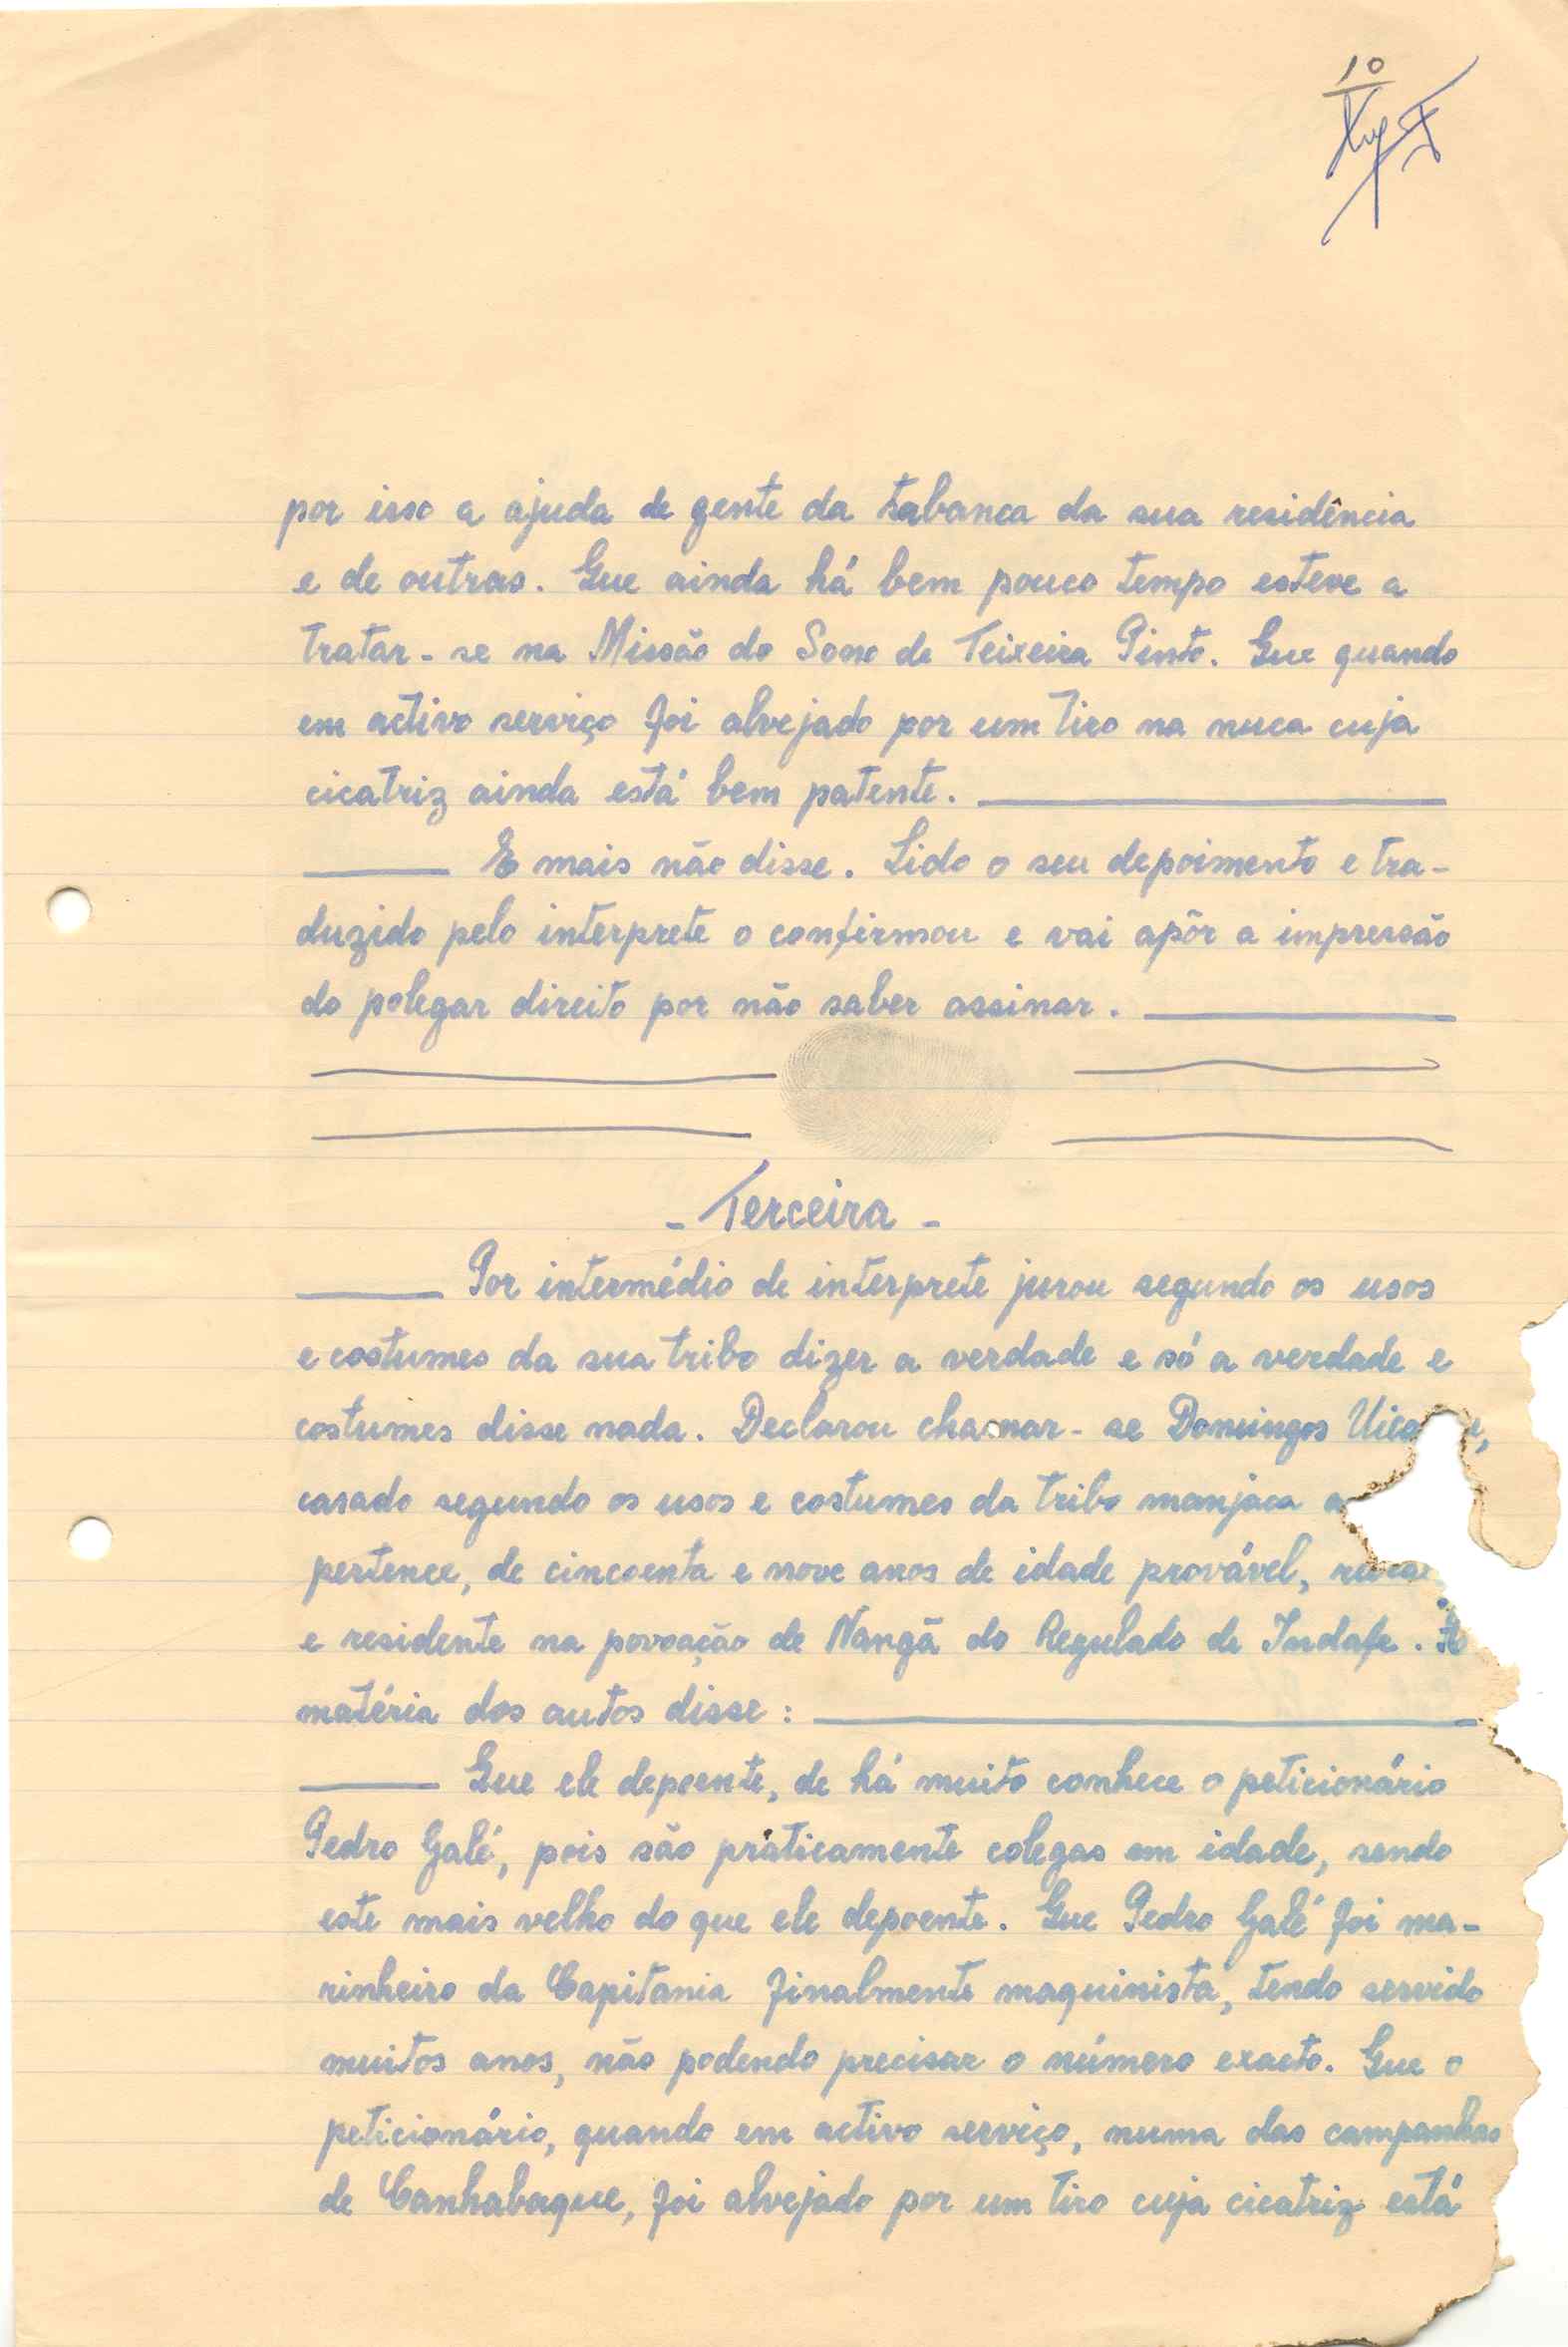 10
por isso a ajuda de gente da tabanca da sua residência
e de outras. Que ainda há bem pouco tempo esteve a
tratar-se na Missão do Sono de Teixeira Pinto. Que quando
em activo serviço foi alvejado por um tiro na nuca cuja
cicatriz ainda está bem patente.
E mais não disse. Lido o seu depoimento e tra-
duzido pelo interprete o confirmou e vai apôr a impressão
do polegar direito por não saber assinar.
- Terceira -
Por intermédio de interprete jurou segundo os usos
e costumes da sua tribo dizer a verdade e só a verdade e
costumes disse nada. Declarou chamar-se Domingos
casado segundo os usos e costumes da tribo manjaca a
pertence, de cincoenta e nove anos de idade provável,
e residente na povoação de Nangã do Regulado de Indafe.
matéria dos autos disse:
Que ele depoente, de há muito conhece o peticionário
Pedro Galé, pois são práticamente colegas em idade, sendo
este mais velho do que ele depoente. Que Pedro Galé foi ma-
rinheiro da Capitania finalmente maquinista, tendo servido
muitos anos, não podendo precisar o número exacto. Que o
peticionário, quando em activo serviço, numa das campanhas
de Canhabaque, foi alvejado por um tiro cuja cicatriz está